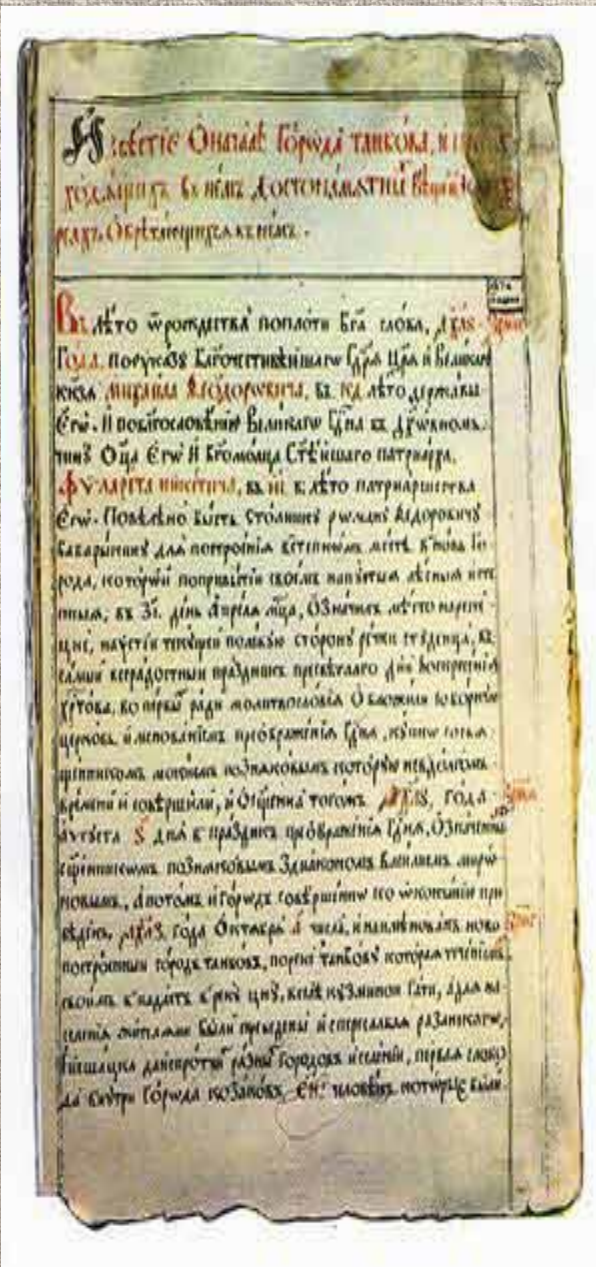 Извѣстїе Ѡначалѣ Города танбова, и
ходѧщихъ внемъ достопамѧтны Вещи
рѧхъ, Обрѣтающихсѧ внемъ.
Въ лѣто ѿ рождества поплоти Бга слова, ҂АХЛS
Года. поуказу Благочестивѣйшаго Гдрѧ Црѧ и Великаг
кнѧза Михаила Ѳеодоровича, въ КД лѣто державы
Егѡ. И поблгословенїю Великагѡ Гдна въ дꙋховномъ
чинꙋ Оца Егѡ И Бгомолца Стѣйшаго патрїарха,
Фѵларета никитича, въ лѣто патриаршества
Егѡ. Повелѣно бысть столникꙋ роману Ѳедоровичꙋ
бабарыкинꙋ для построенїѧ встепномъ мѣстѣ внова Го
рода, который поприбытїи своемъ напустыѧ лѣсныѧ исте
пныѧ, въ ЗI день апрелѧ мца, Означилъ мѣсто нареке
цнѣ, наустїи текущей полевую сторону речки студенца, въ
самый всерадостный праздникъ пресвѣтлаго днѧ Воскресенїѧ
хртова, во первы ради молитвословїѧ Обложили соборную
церковь. именованїемъ преображенїѧ Гднѧ, купно сосвѧ
щенникомъ позняковымъ которую
времени и совершили, и Ѡсщенна тогожъ ҂АХЛS, года
августа S днѧ в праздникъ преображенїѧ Гднѧ, Означеннымъ
сщенникомъ позняковымъ Здиакономъ Василиемъ миро
новымъ, Апотомъ и Городъ совершенно ко ѡкончанїю при
веденъ, ҂АХЛЗ года Октѧбрѧ А числа, и наименованъ ново
построенный городъ танбовъ, порекѣ танбовꙋ которая теченїемъ
своимъ впадаетъ врекꙋ цнꙋ, возлѣ кузминои Гати, адлѧ на
селенїѧ жителями были преведены и переѧславлѧ рѧзанскаго,
ишацка даиспротчи разны Городовъ иселенїи, перваѧ слобо
да внутри Города козаковъ, человѣкъ которые были